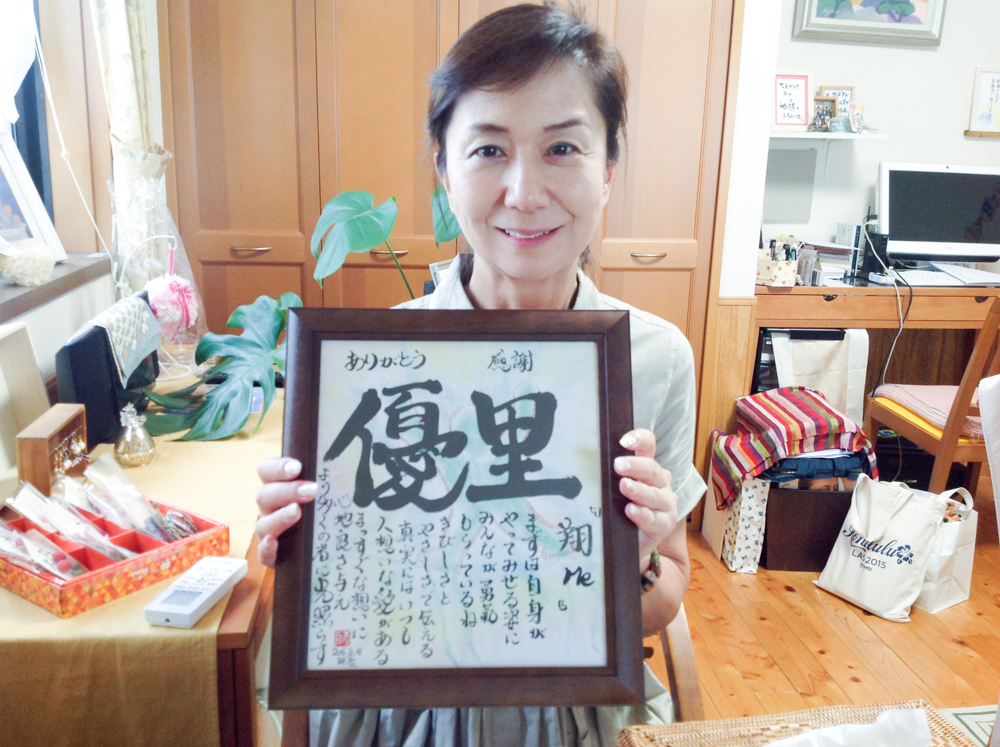 ありがとう 感謝
優里
「翔Me」
まずは自身が
やってみせる姿に
みんなが勇気
もらっているね
きびしさと
やさしさで伝える
真実にはいつも
人想いな愛がある
まっすぐな想いに
心地良さ与え
より多くの者に光照らす
Honolulu
2015